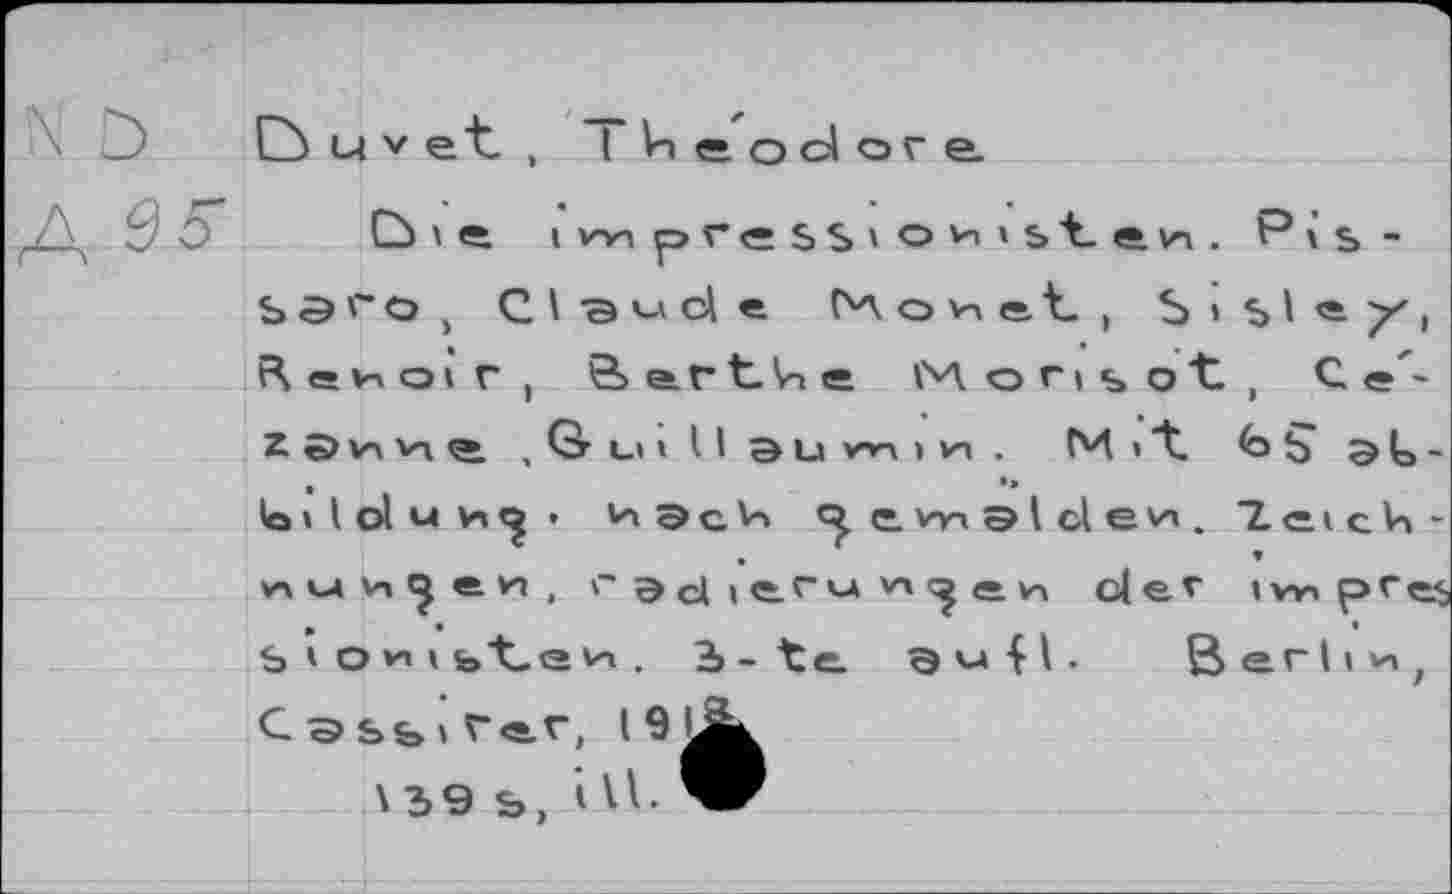 ND Duvet, Théodore
Д 95 Die impressionisten. Pis-
saro, Claude Monet, Sisley,
Renoir, Berthe Morisot, Cé-
zanne, Guillaumin. Mit 65 ab-
bildung. nach gemälden. Zeich-
nungen, radierungen der impres
sionisten. 3-te aufl. Berlin,
Cassirer, 191
139 s, ill.